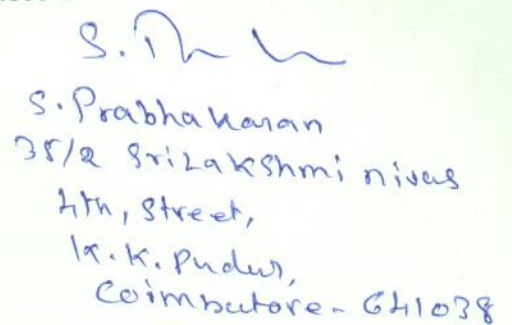 S. Prabhakaran
35/2 SriLakshmi nivas
4th, Street,
K. K. Pudur,
Coimbatore - 641038